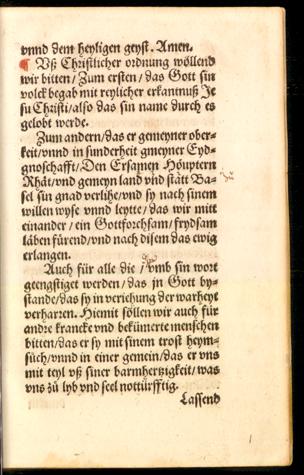 vnnd dem heyligen geyst. Amen.
¶ Vß Christlicher ordnung wöllend
wir bitten / Zum ersten / das Gott sin
volck begab mit reylicher erkantnuß Je
su Christi / also das sin name durch es
gelobt werde.
Zum andern / das er gemeyner ober-
keit / vnnd in sunderheit gmeyner Eyd-
gnoschafft / Den Ersamen Höuptern
Rhät / vnd gemeyn land vnd stätt Ba-
sel sin gnad verlihe / vnd sy nach sinem
willen wyse vnnd leytte / das wir mitt
einander / ein Gottforchsam / frydsam
läben fürend / vnd nach disem das ewig
erlangen.
Auch für alle die / vmb sin wort
geengstiget werden / das jn Gott by-
stande / das sy in veriehung der warheyt
verharren. Hiemit söllen wir auch für
andre krancke vnd bekümerte menschen
bitten / das er sy mit sinem trost heym-
süch / vnnd in einer gemein / das er vns
mit teyl vß siner barmhertzigkeit / was
vns zů lyb vnd seel notturfftig.
Lassend
1